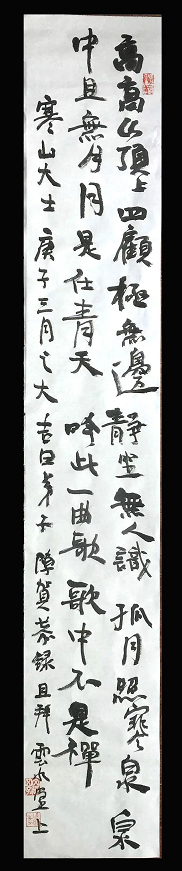 高高山頂上四顧極無邊靜坐無人識孤月照寒泉泉
中且無月月是在青天吟此一曲歌歌中不是禪
寒山大士庚子三月之大吉日弟子陳賀恭錄且拜雲水堂上